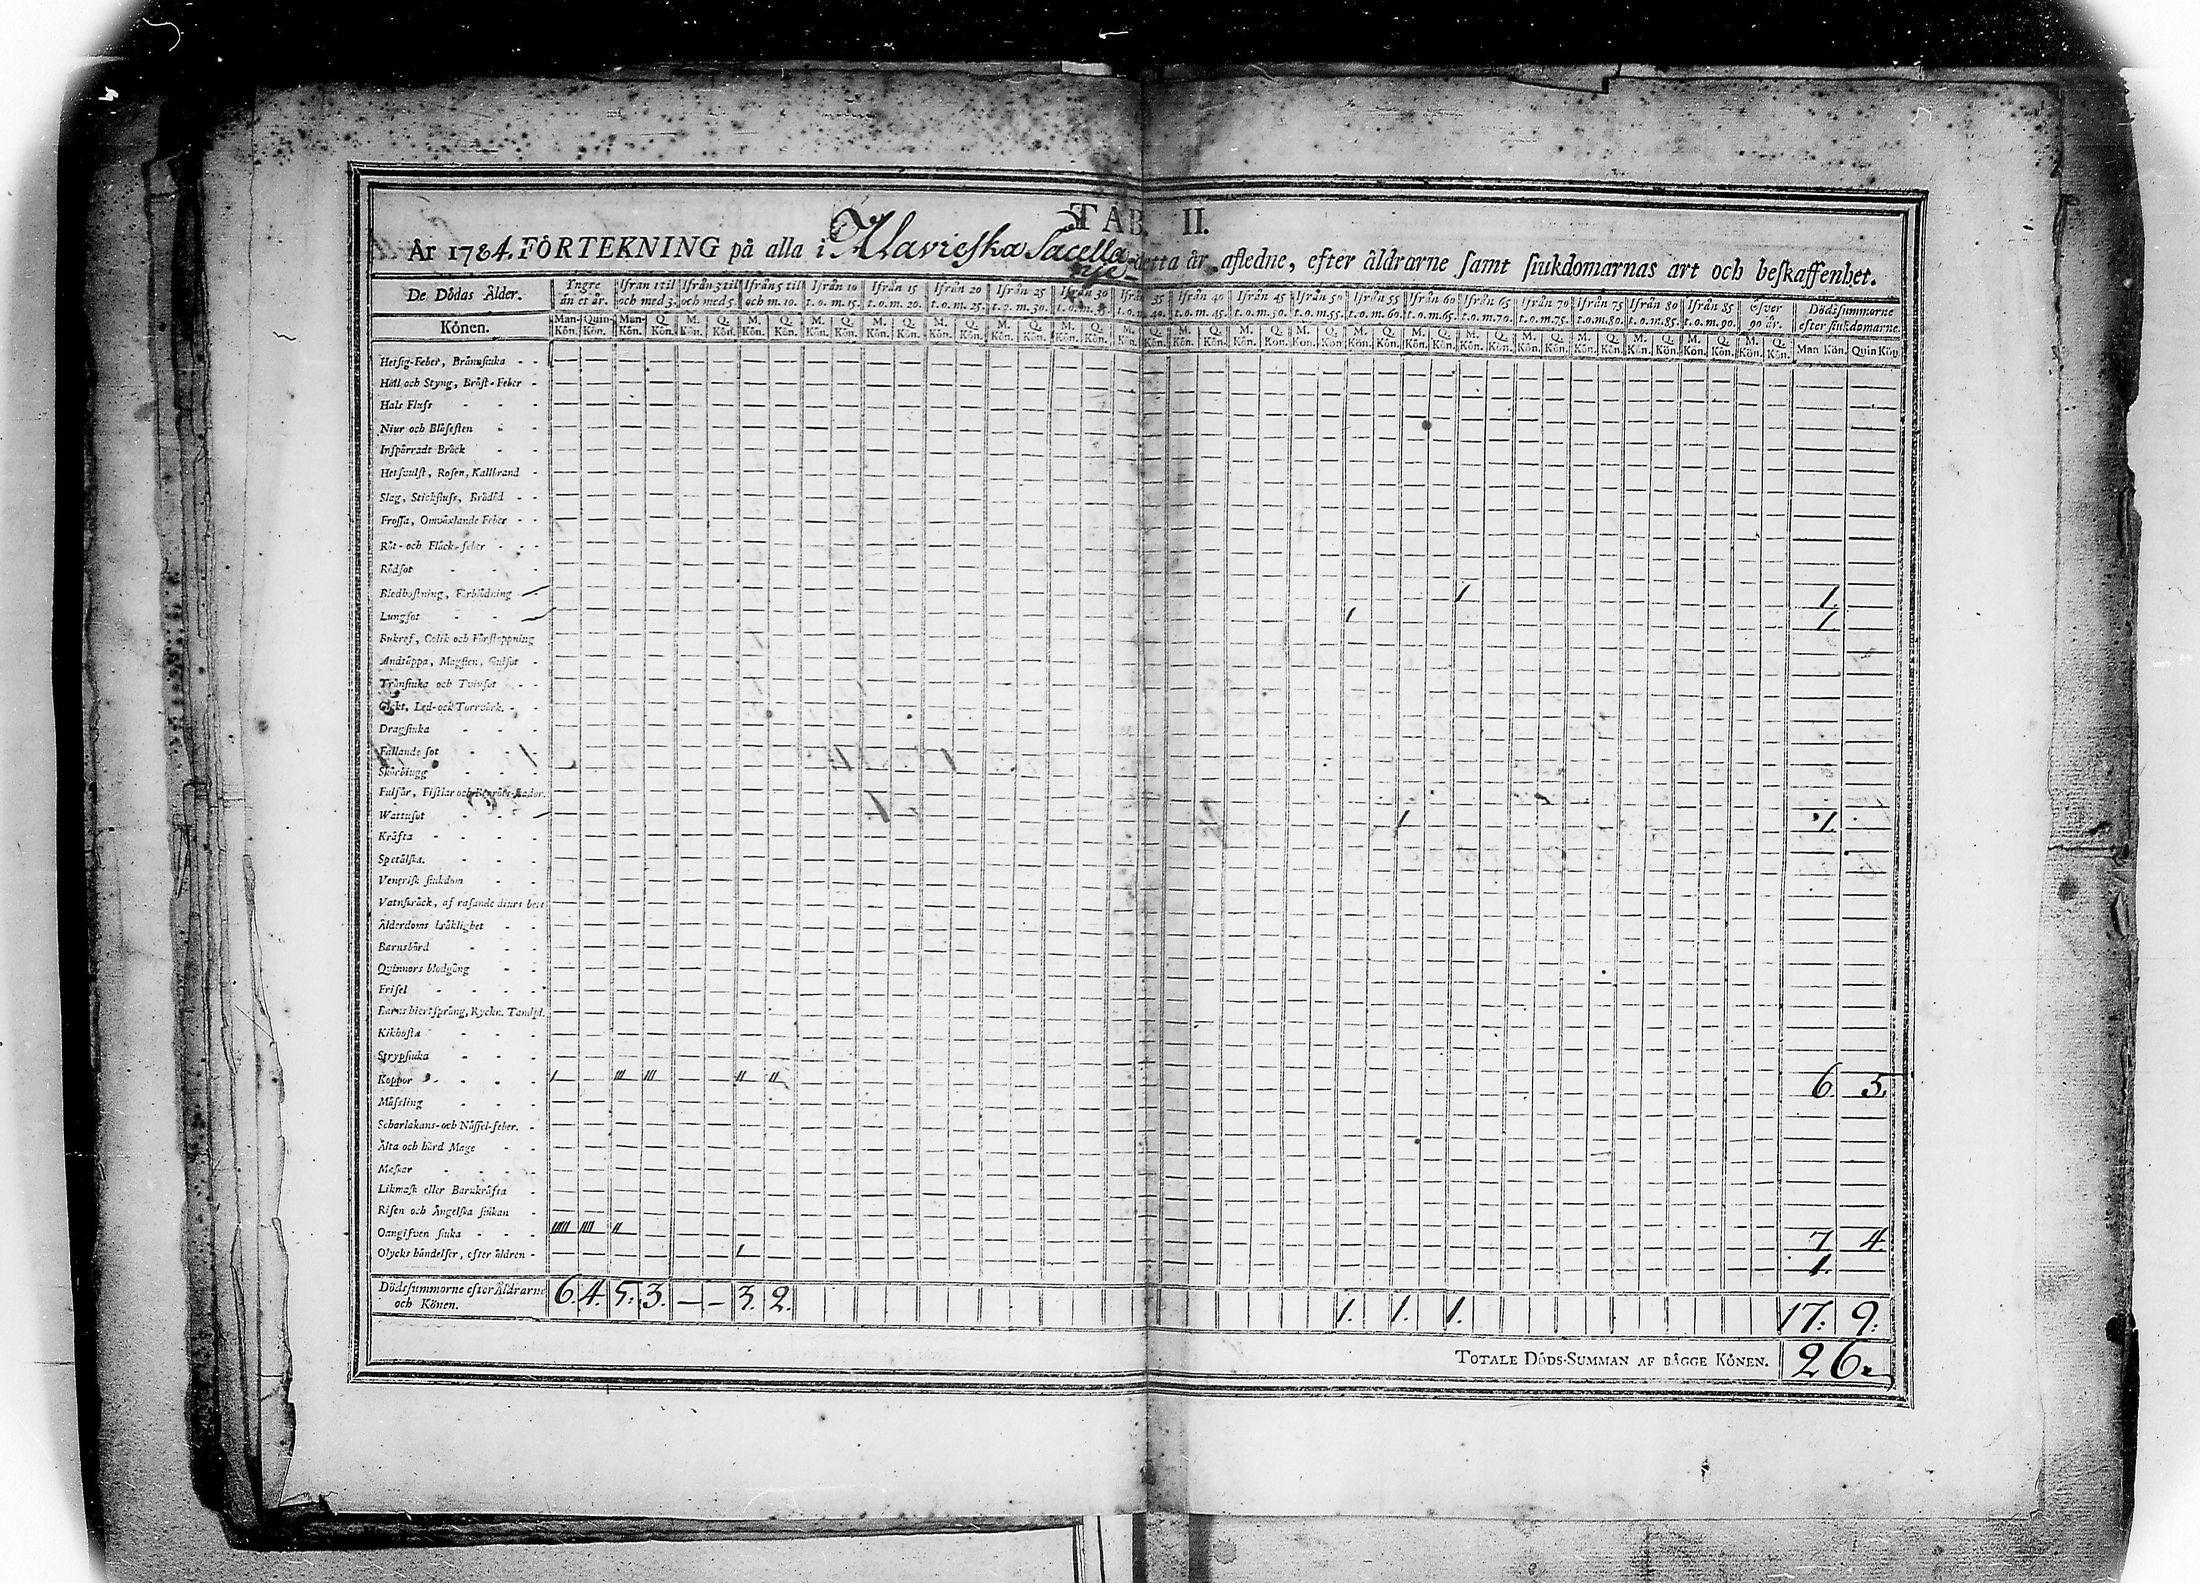 TAB. II.
År 1784. FÖRTEKNING på alla i Alavieska Sacellnje detta år afledne, efter åldrarne samt siukdomarnas art och beskaffenhet.
De Dödas Ålder. Yngre än et år. Ifrån 1 til och med 3. Ifrån 3 til och med 5. Ifrån 5 til och m. 10. Ifrån 10 t.o.m. 15. Ifrån 15 t.o.m. 20. Ifrån 20 t.o.m. 25. Ifrån 25 t.o.m. 30. Ifrån 30 Ifrån 35 40. Ifrån 40 t.o.m. 45. Ifrån 45 t.o.m. 50. Ifrån 50 t.o.m. 55. Ifrån 55 t.o.m. 60. Ifrån 60 t.o.m. 65. Ifrån 65 t.o.m. 70. Ifrån 70 t.o.m. 75. Ifrån 75 t.o.m. 80. Ifrån 80 t.o.m. 85. Ifrån 85 t.o.m. 90. Öfver 90 år. Dödssummorne efter siukdomarne.
Könen. Man-Kön. Quin-Kön. Man-Kön. Q. Kön. M. Kön. Q. Kön. M. Kön. Q. Kön. Man Kön. Quin Kön
Hetsig-Feber, Brännsiuka
Håll och Styng, Bröst-Feber
Hals Fluss
Niur och Blåsesten
Inspärradt Bråck
Hetsvulst, Rosen, Kallbrand
Slag, Stickfluss, Brådöd
Frossa, Omväxlande Feber
Röt- och Fläck-feber
Rödsot
Blodhostning, Förblödning 1 1.
Lungsot 1 1.
Bukref, Colik och Förstoppning
Andtäppa, Magsten, Gulsot
Trånsiuka och Tvinsot
Gickt, Led- och Torrvärk.
Dragsiuka
Fallande sot
Skörbiugg
Fulsår, Fistlar och Benröte-skador.
Wattusot 1 1.
Kräfta
Spetälska.
Venerisk siukdom
Vatnskräck, af rasande diurs bett
Ålderdoms bräklighet
Barnsbörd
Quinnors blodgång
Frisel
Barns hiertsprång, Ryckn. Tandsl.
Kikhosta
Strypsiuka
Koppor I III III II II 6 5.
Mässling
Scharlakans- och Nässel-feber.
Älta och hård Mage
Maskar
Likmask eller Barnkräfta
Risen och Ängelska siukan
Oangifven siuka IIIII IIII II 7 4.
Olycks händelser, efter åldren 1 1.
Dödssummorne efter Åldrarne och Könen. 6. 4. 5. 3. — — 3. 2. 1. 1. 1. 17: 9:
TOTALE DÖDS-SUMMAN AF BÄGGE KÖNEN. 26.